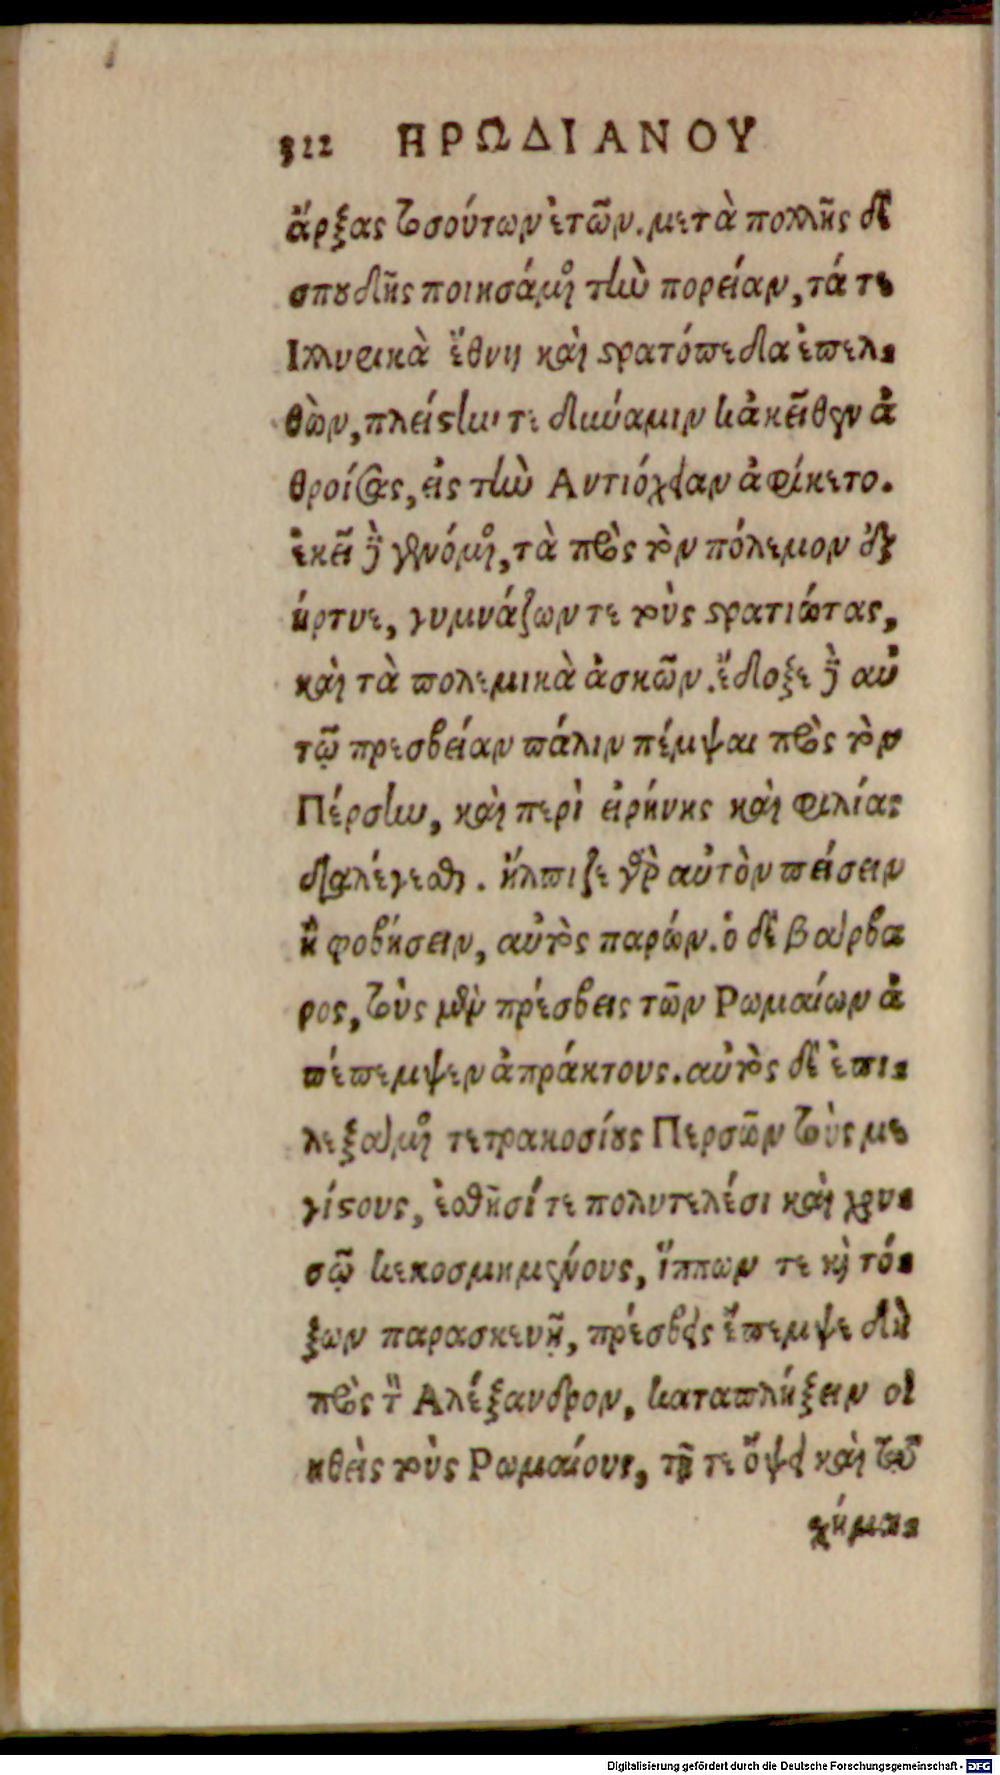 322 ΗΡΩΔΙΑΝΟΥ
ἄρξας τοσούτων ἐτῶν. μετὰ πολλῆς δὲ
σπουδῆς ποιησάμενος τὴν πορείαν, τά τε
Ιλλυρικὰ ἔθνη καὶ στρατόπεδα ἐπελ-
θὼν, πλείστην τε δύναμιν κἀκεῖθεν ἀ
θροίσας, εἰς τὴν Αντιόχειαν ἀφίκετο.
ἐκεῖ δὲ γενόμενος, τὰ πρὸς τὸν πόλεμον ἐξ
ήρτυε, γυμνάζων τε τοὺς στρατιώτας,
καὶ τὰ πολεμικὰ ἀσκῶν. ἔδοξε δὲ αὐ
τῷ πρεσβείαν πάλιν πέμψαι πρὸς τὸν
Πέρσην, καὶ περὶ εἰρήνης καὶ φιλίας
διαλέγεσθαι. ἤλπιζε γὰρ αὐτὸν πείσειν
ἢ φοβήσειν, αὐτὸς παρών. ὁ δὲ βάρβα
ρος, τοὺς μὲν πρέσβεις τῶν Ρωμαίων ἀ
πέπεμψεν ἀπράκτους. αὐτὸς δὲ ἐπι-
λεξάμενος τετρακοσίους Περσῶν τοὺς με
γίστους, ἐσθῆσί τε πολυτελέσι καὶ χρυ-
σῷ κεκοσμημένους, ἵππων τε καὶ τό-
ξων παρασκευῇ, πρέσβεις ἔπεμψε δὴ
πρὸς τὸν Αλέξανδρον, καταπλήξειν οἰ
ηθεὶς τοὺς Ρωμαίους, τῇ τε ὄψει καὶ τῷ
χήμα-
Digitalisierung gefördert durch die Deutsche Forschungsgemeinschaft - DFG